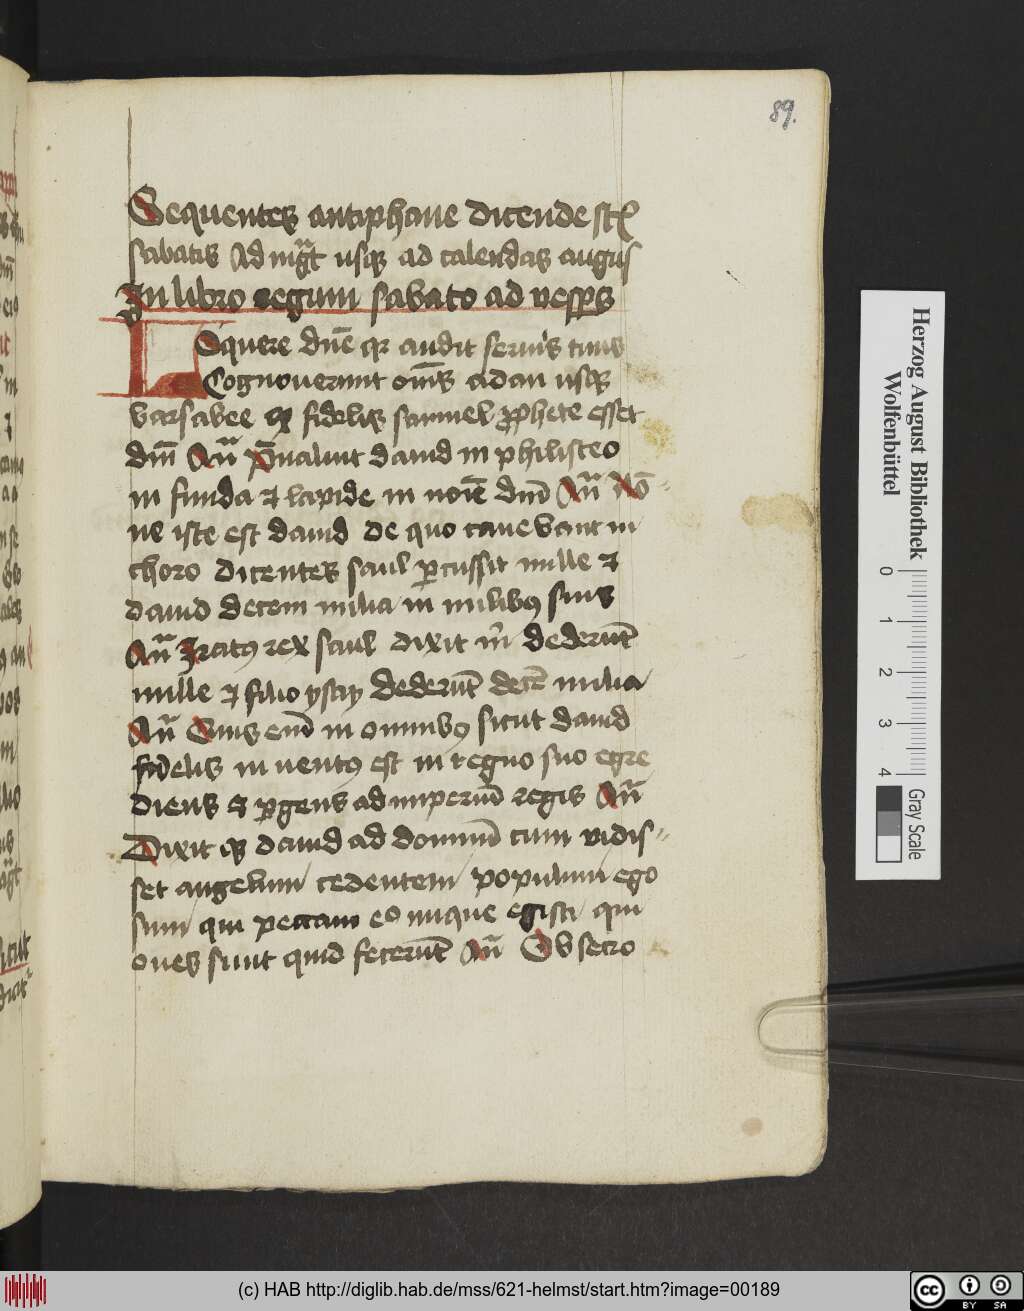 89.
Sequentes antiphane dicende st'
sabatis Ad mg̃t usqꝫ ad calendas augus
In libro regum sabato ad vesp̲s
Loquere dñe qr audit seruus tuus
Cognouerunt om̃s adan usqꝫ
barsabee qꝛ fidelis samuel ꝓphete esset
dm̃ Añ P̃ualuit dauid in philisteo
in funda ⁊ lapide in noı̃e dm̃ Añ Nõ
ne iste est dauid de quo canebant in
choro dicentes saul ꝑcussit mille ⁊
dauid decem milia in milibꝰ suis
Añ Iratꝰ rex saul dixit m̃ dederũt
mille ⁊ filio ysay dederũt decẽ milia
Añ Quis em̃ in omnibꝰ sicut dauid
fidelis in uentꝰ est in regno suo egre
diens & ꝑgens ad imperiũ regis Añ
Dixit qꝫ dauid ad dominũ cum vidis-
set angelum cedentem populum ego
sum qui peccaui eo inique egisti qui
oues sunt quid fecerũt Añ Obsecro
Herzog August Bibliothek
Wolfenbüttel
0 1 2 3 4
Gray Scale
(c) HAB http://diglib.hab.de/mss/621-helmst/start.htm?image=00189
cc BY SA